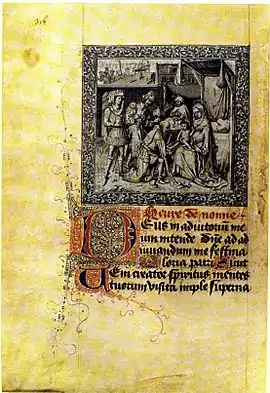 heure de nonne
Deus in adiutorium me
um intende Dñe ad ad
iuuandum me festina
Gloria patri Sicut
Ueni creator spiritus mentes
tuorum visita imple superna